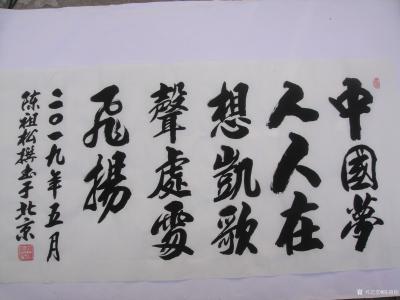 中國夢
人人在
想凱歌
聲處處
飛揚
二〇一九年五月
陈祖松撰书于北京